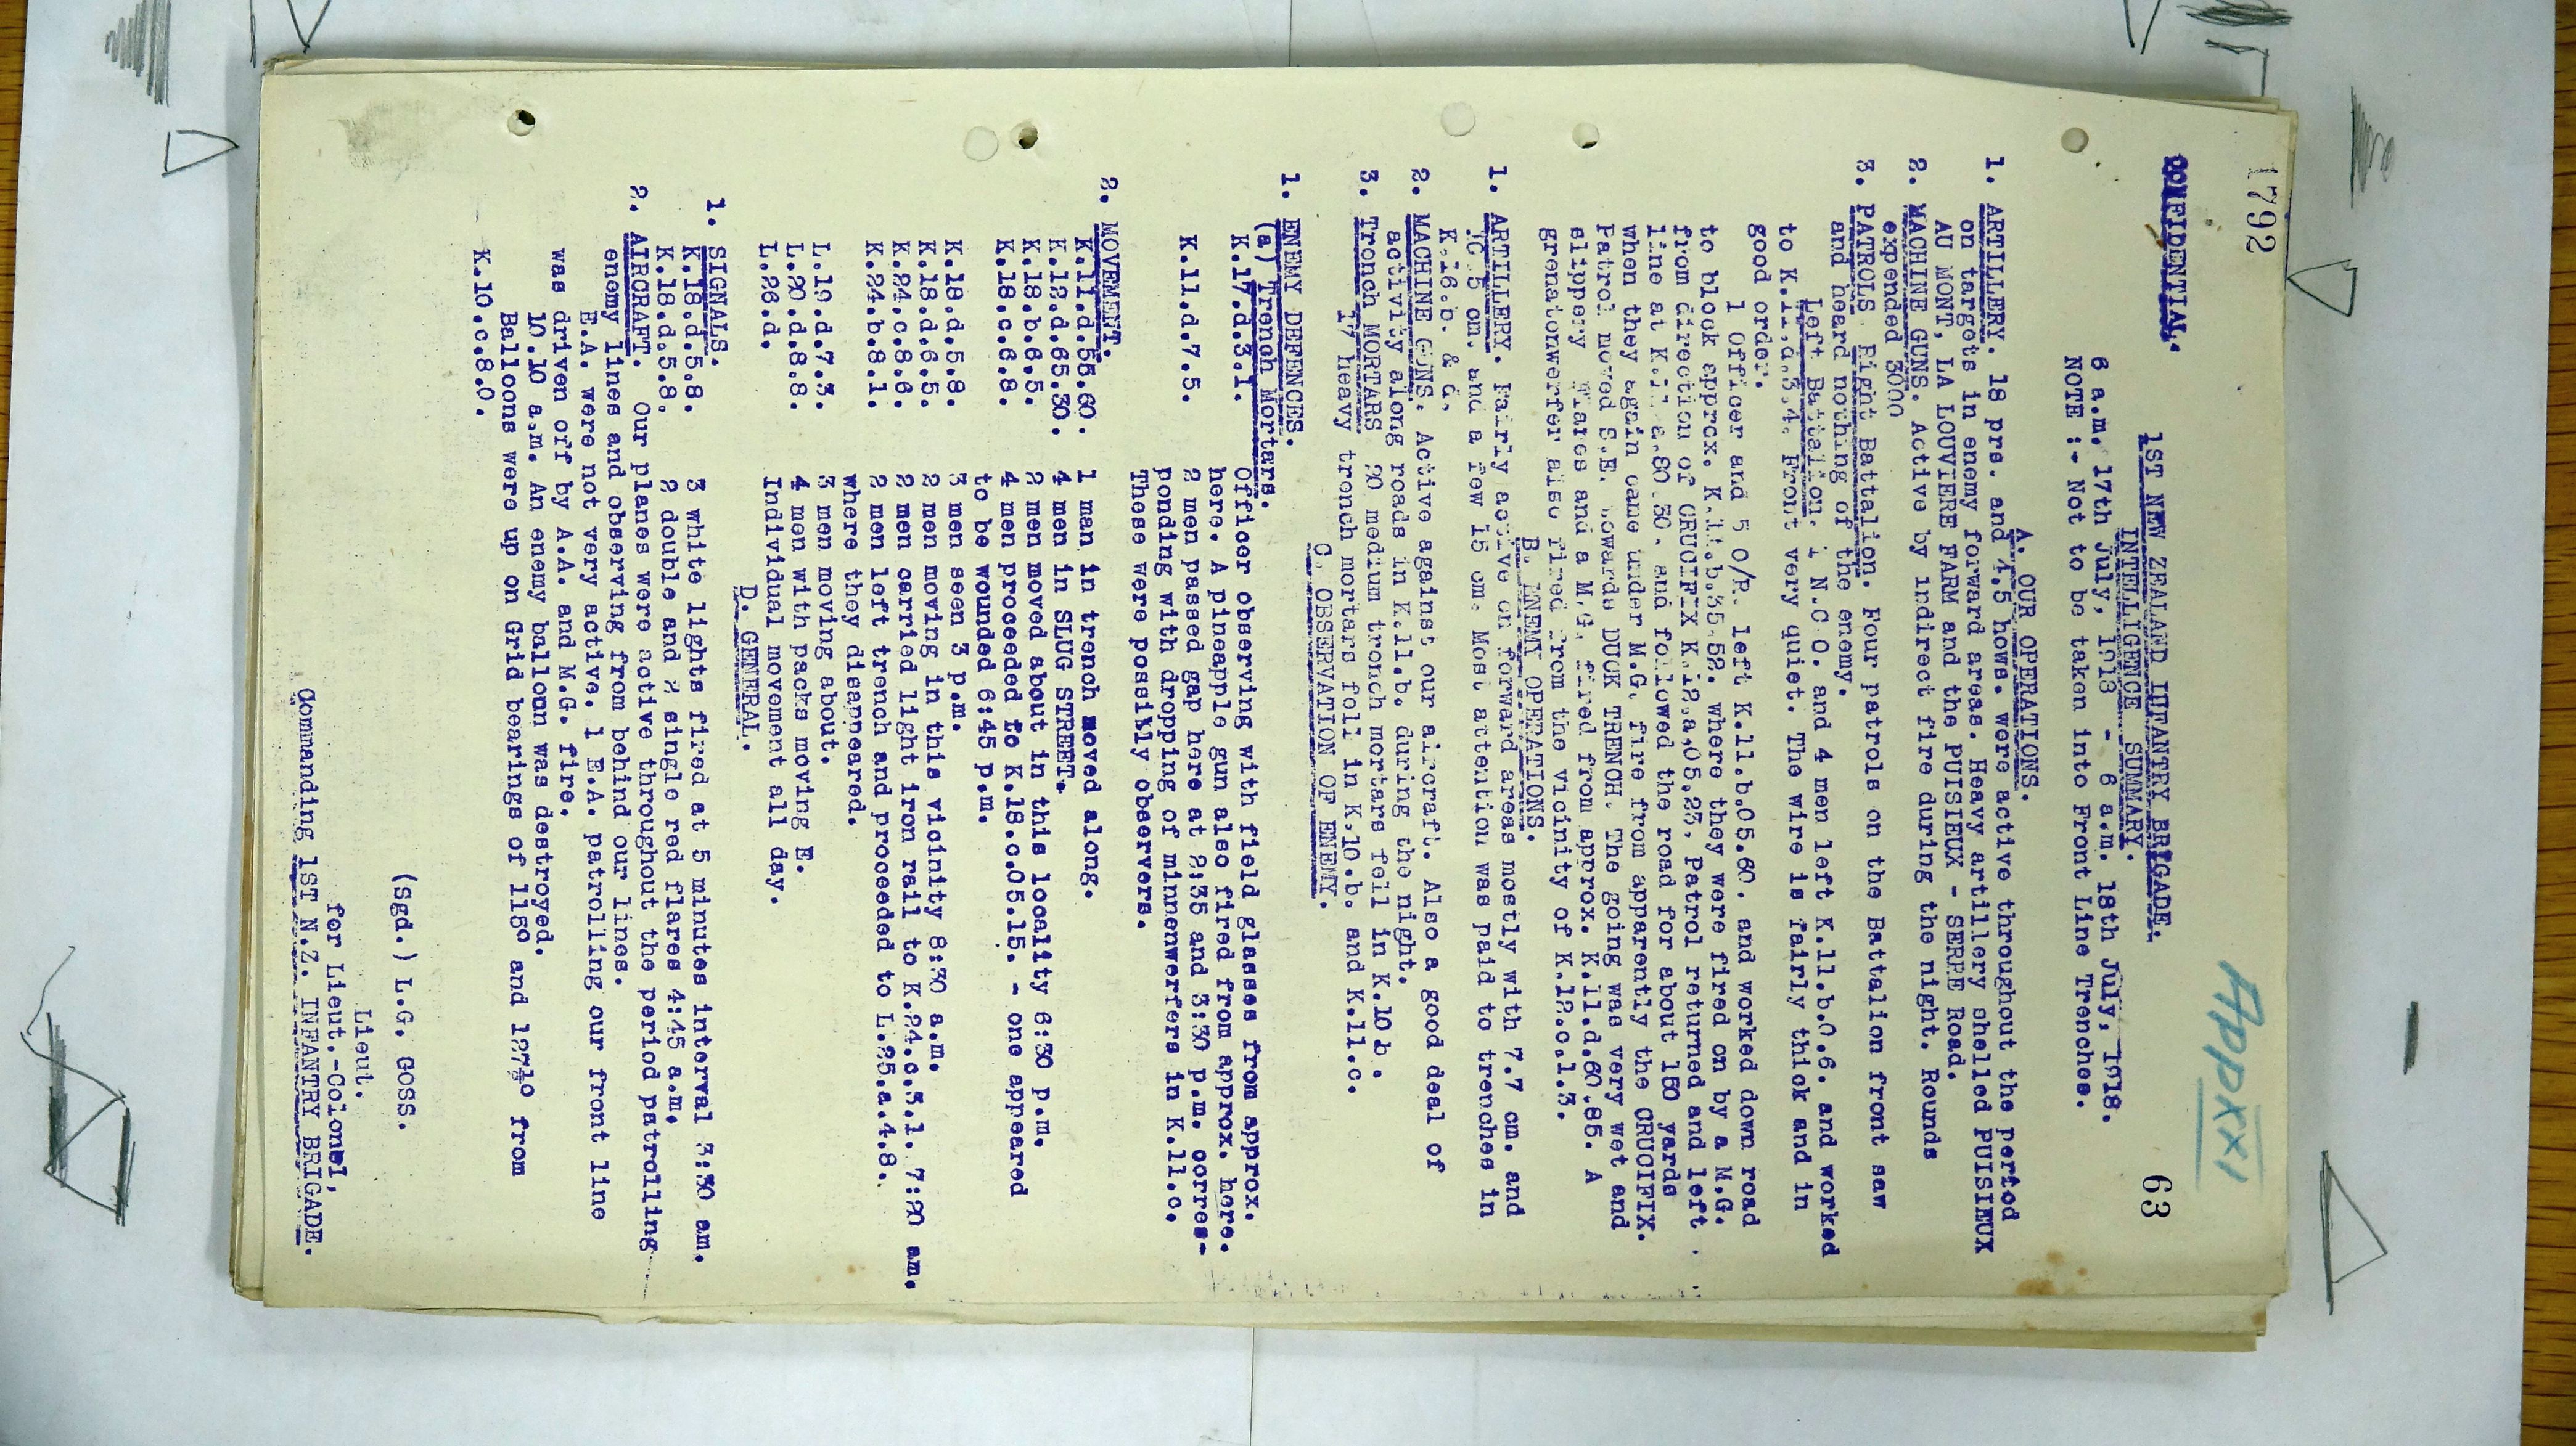 1792
Appx XI
63
CONFIDENTIAL.
1ST NEW ZEALAND INFANTRY BRIGADE.
INTELLIGENCE SUMMARY.
6 a.m. 17th July, 1918 - 6 a.m. 18th July, 1918.
NOTE :- Not to be taken into Front Line Trenches.
A. OUR OPERATIONS.
1. ARTILLERY. 18 prs. and 4.5 hows. were active throughout the period
on targets in enemy forward areas. Heavy artillery shelled PUISIEUX
AU MONT, LA LOUVIERE FARM and the PUISIEUX - SERRE Road.
2. MACHINE GUNS. Active by indirect fire during the night. Rounds
expended 3000
3. PATROLS Right Battalion. Four patrols on the Battalion front saw
and heard nothing of the enemy.
Left Battalion. 1 N.C.O. and 4 men left K.11.b.0.6. and worked
to K.11.d.3.4. Front very quiet. The wire is fairly thick and in
good order.
1 Officer and 5 O/R. left K.11.b.05.60. and worked down road
to block approx. K.11.b.35.52. where they were fired on by a M.G.
from direction of CRUCIFIX K.12.a.05.23. Patrol returned and left
line at K. a.80.30. and followed the road for about 150 yards
when they again came under M.G. fire from apparently the CRUCIFIX.
Patrol moved S.E. towards DUCK TRENCH. The going was very wet and
slippery Flares and a M.G. fired from approx. K.11.d.60.85. A
grenatenwerfer also fired from the vicinity of K.12.c.1.3.
B. ENEMY OPERATIONS.
1. ARTILLERY. Fairly active on forward areas mostly with 7.7 cm. and
10.5 cm. and a few 15 cm. Most attention was paid to trenches in
K.16.b. & d.
2. MACHINE GUNS. Active against our aircraft. Also a good deal of
activity along roads in K.11.b. during the night.
3. Trench MORTARS 20 medium trench mortars fell in K.10 b.
17 heavy trench mortars fell in K.10.b. and K.11.c.
C. OBSERVATION OF ENEMY.
1. ENEMY DEFENCES.
(a) Trench Mortars.
K.17.d.3.1. Officer observing with field glasses from approx.
here. A pineapple gun also fired from approx. here.
K.11.d.7.5. 2 men passed gap here at 2:35 and 3:30 p.m. corres-
ponding with dropping of minnenwerfers in K.11.c.
These were possibly observers.
2. MOVEMENT.
K.11.d.55.60. 1 man in trench moved along.
K.12.d.65.30. 4 men in SLUG STREET.
K.18.b.6.5. 2 men moved about in this locality 6:30 p.m.
K.18.c.6.8. 4 men proceeded to K.18.c.05.15. - one appeared
to be wounded 6:45 p.m.
K.18.d.5.8. 3 men seen 3 p.m.
K.18.d.6.5. 2 men moving in this vicinity 8:30 a.m.
K.24.c.8.6. 2 men carried light iron rail to K.24.c.3.1. 7:20 am.
K.24.b.8.1. 2 men left trench and proceeded to L.25.a.4.8.
where they disappeared.
L.19.d.7.3. 3 men moving about.
L.20.d.8.8. 4 men with packs moving E.
L.26.d. Individual movement all day.
D. GENERAL.
1. SIGNALS.
K.18.d.5.8. 3 white lights fired at 5 minutes interval 3:30 am.
K.18.d.5.8. 2 double and 2 single red flares 4:45 a.m.
2. AIRCRAFT. Our planes were active throughout the period patrolling
enemy lines and observing from behind our lines.
E.A. were not very active. 1 E.A. patrolling our front line
was driven off by A.A. and M.G. fire.
10.10 a.m. An enemy balloon was destroyed.
Balloons were up on Grid bearings of 115o and 127½o from
K.10.c.8.0.
(Sgd.) L.G. GOSS.
Lieut.
for Lieut.-Colonel,
Commanding 1ST N.Z. INFANTRY BRIGADE.